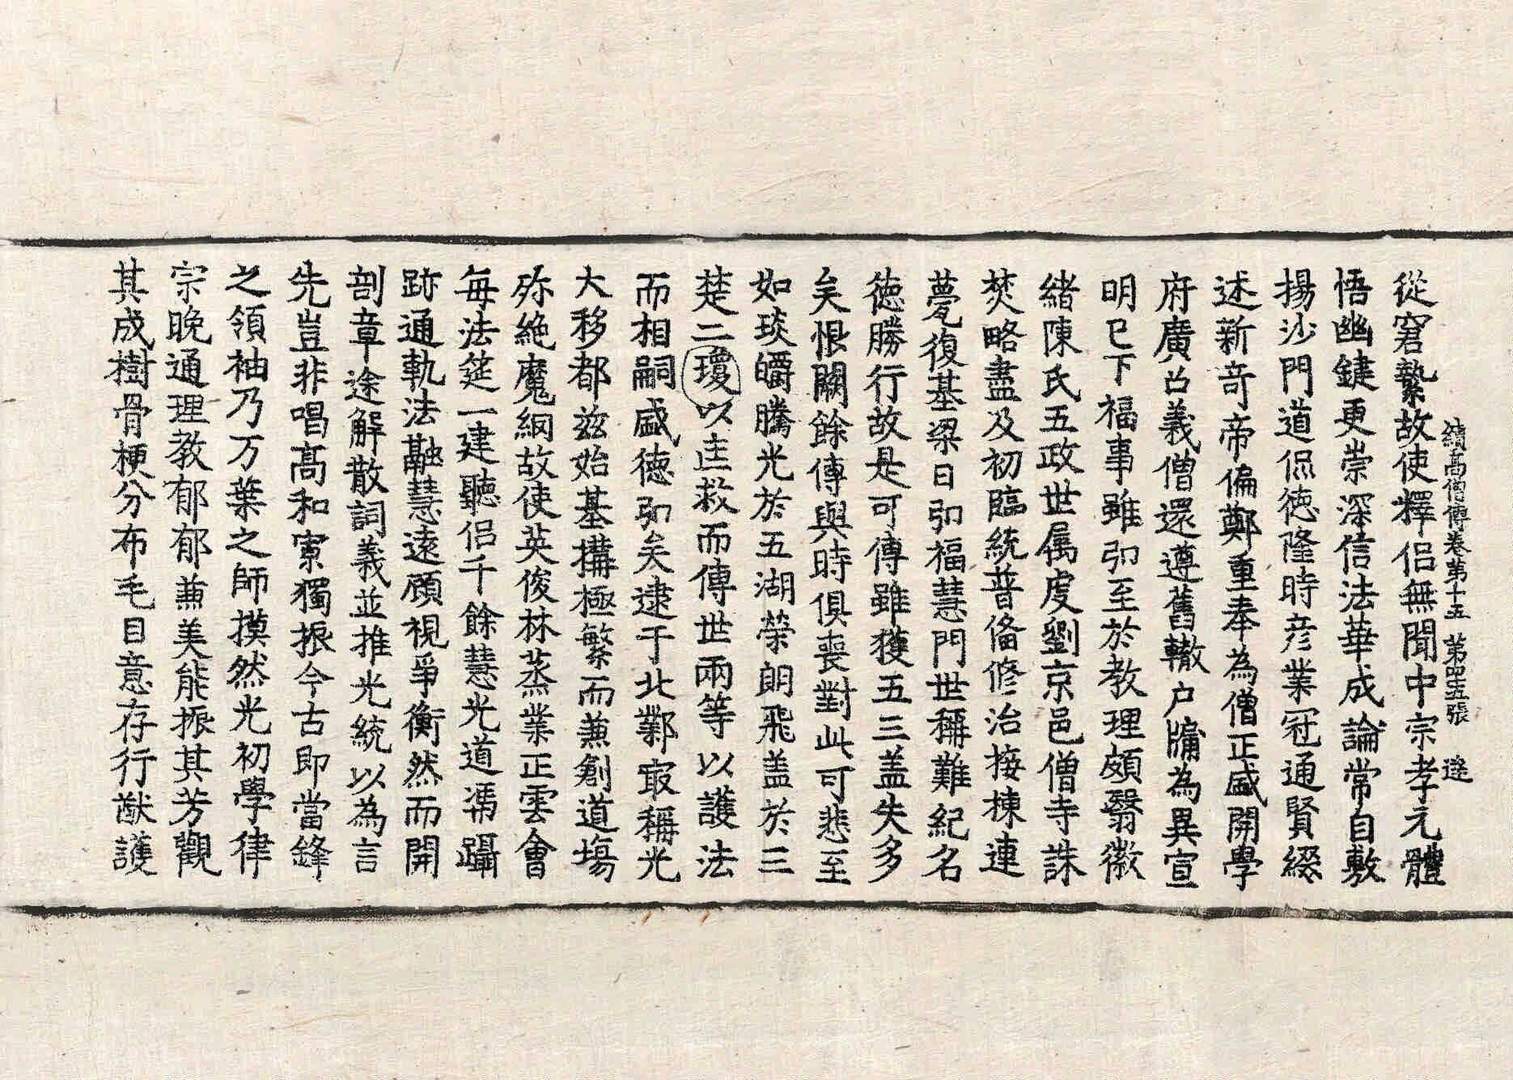 續高僧傳卷第十五 第四十五張 邃
從窘縶故使釋侶無聞中宗孝元體
悟幽鍵更崇深信法華成論常自敷
揚沙門道侃徳隆時彦業冠通賢綴
述新奇帝偏鄭重奉為僧正盛開學
府廣召義僧還遵舊轍户牖為異宣
明已下福事雖弘至於教理頗翳徽
緒陳氏五政世属虔劉京邑僧寺誅
焚略盡及初臨統普俻修治接棟連
甍復基梁日弘福慧門世稱難紀名
徳勝行故是可傳雖獲五三盖失多
矣恨闕餘傳與時俱喪對此可悲至
如琰皭騰光於五湖榮朗飛盖於三
楚二瓊以匡救而傳世兩等以護法
而相嗣盛徳弘矣逮于北鄴㝡稱光
大移都兹始基搆極繁而兼創道塲
殄絶魔網故使英俊林蒸業正雲會
毎法筵一建聽侣千餘慧光道馮躡
跡通軌法融慧遠顧視爭衡然而開
剖章途解散詞義並推光統以為言
先豈非唱髙和寡獨振今古即當鋒
之領袖乃万葉之師摸然光初學律
宗晩通理教郁郁兼美能振其芳觀
其成樹骨梗分布毛目意存行猷護